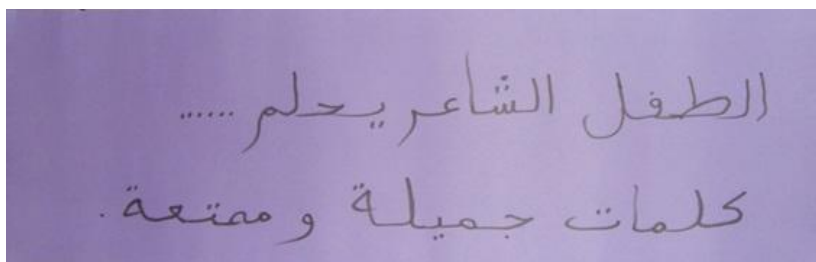 الطفل الشاعر يحلم ......
كلمات جميلة وممتعة.